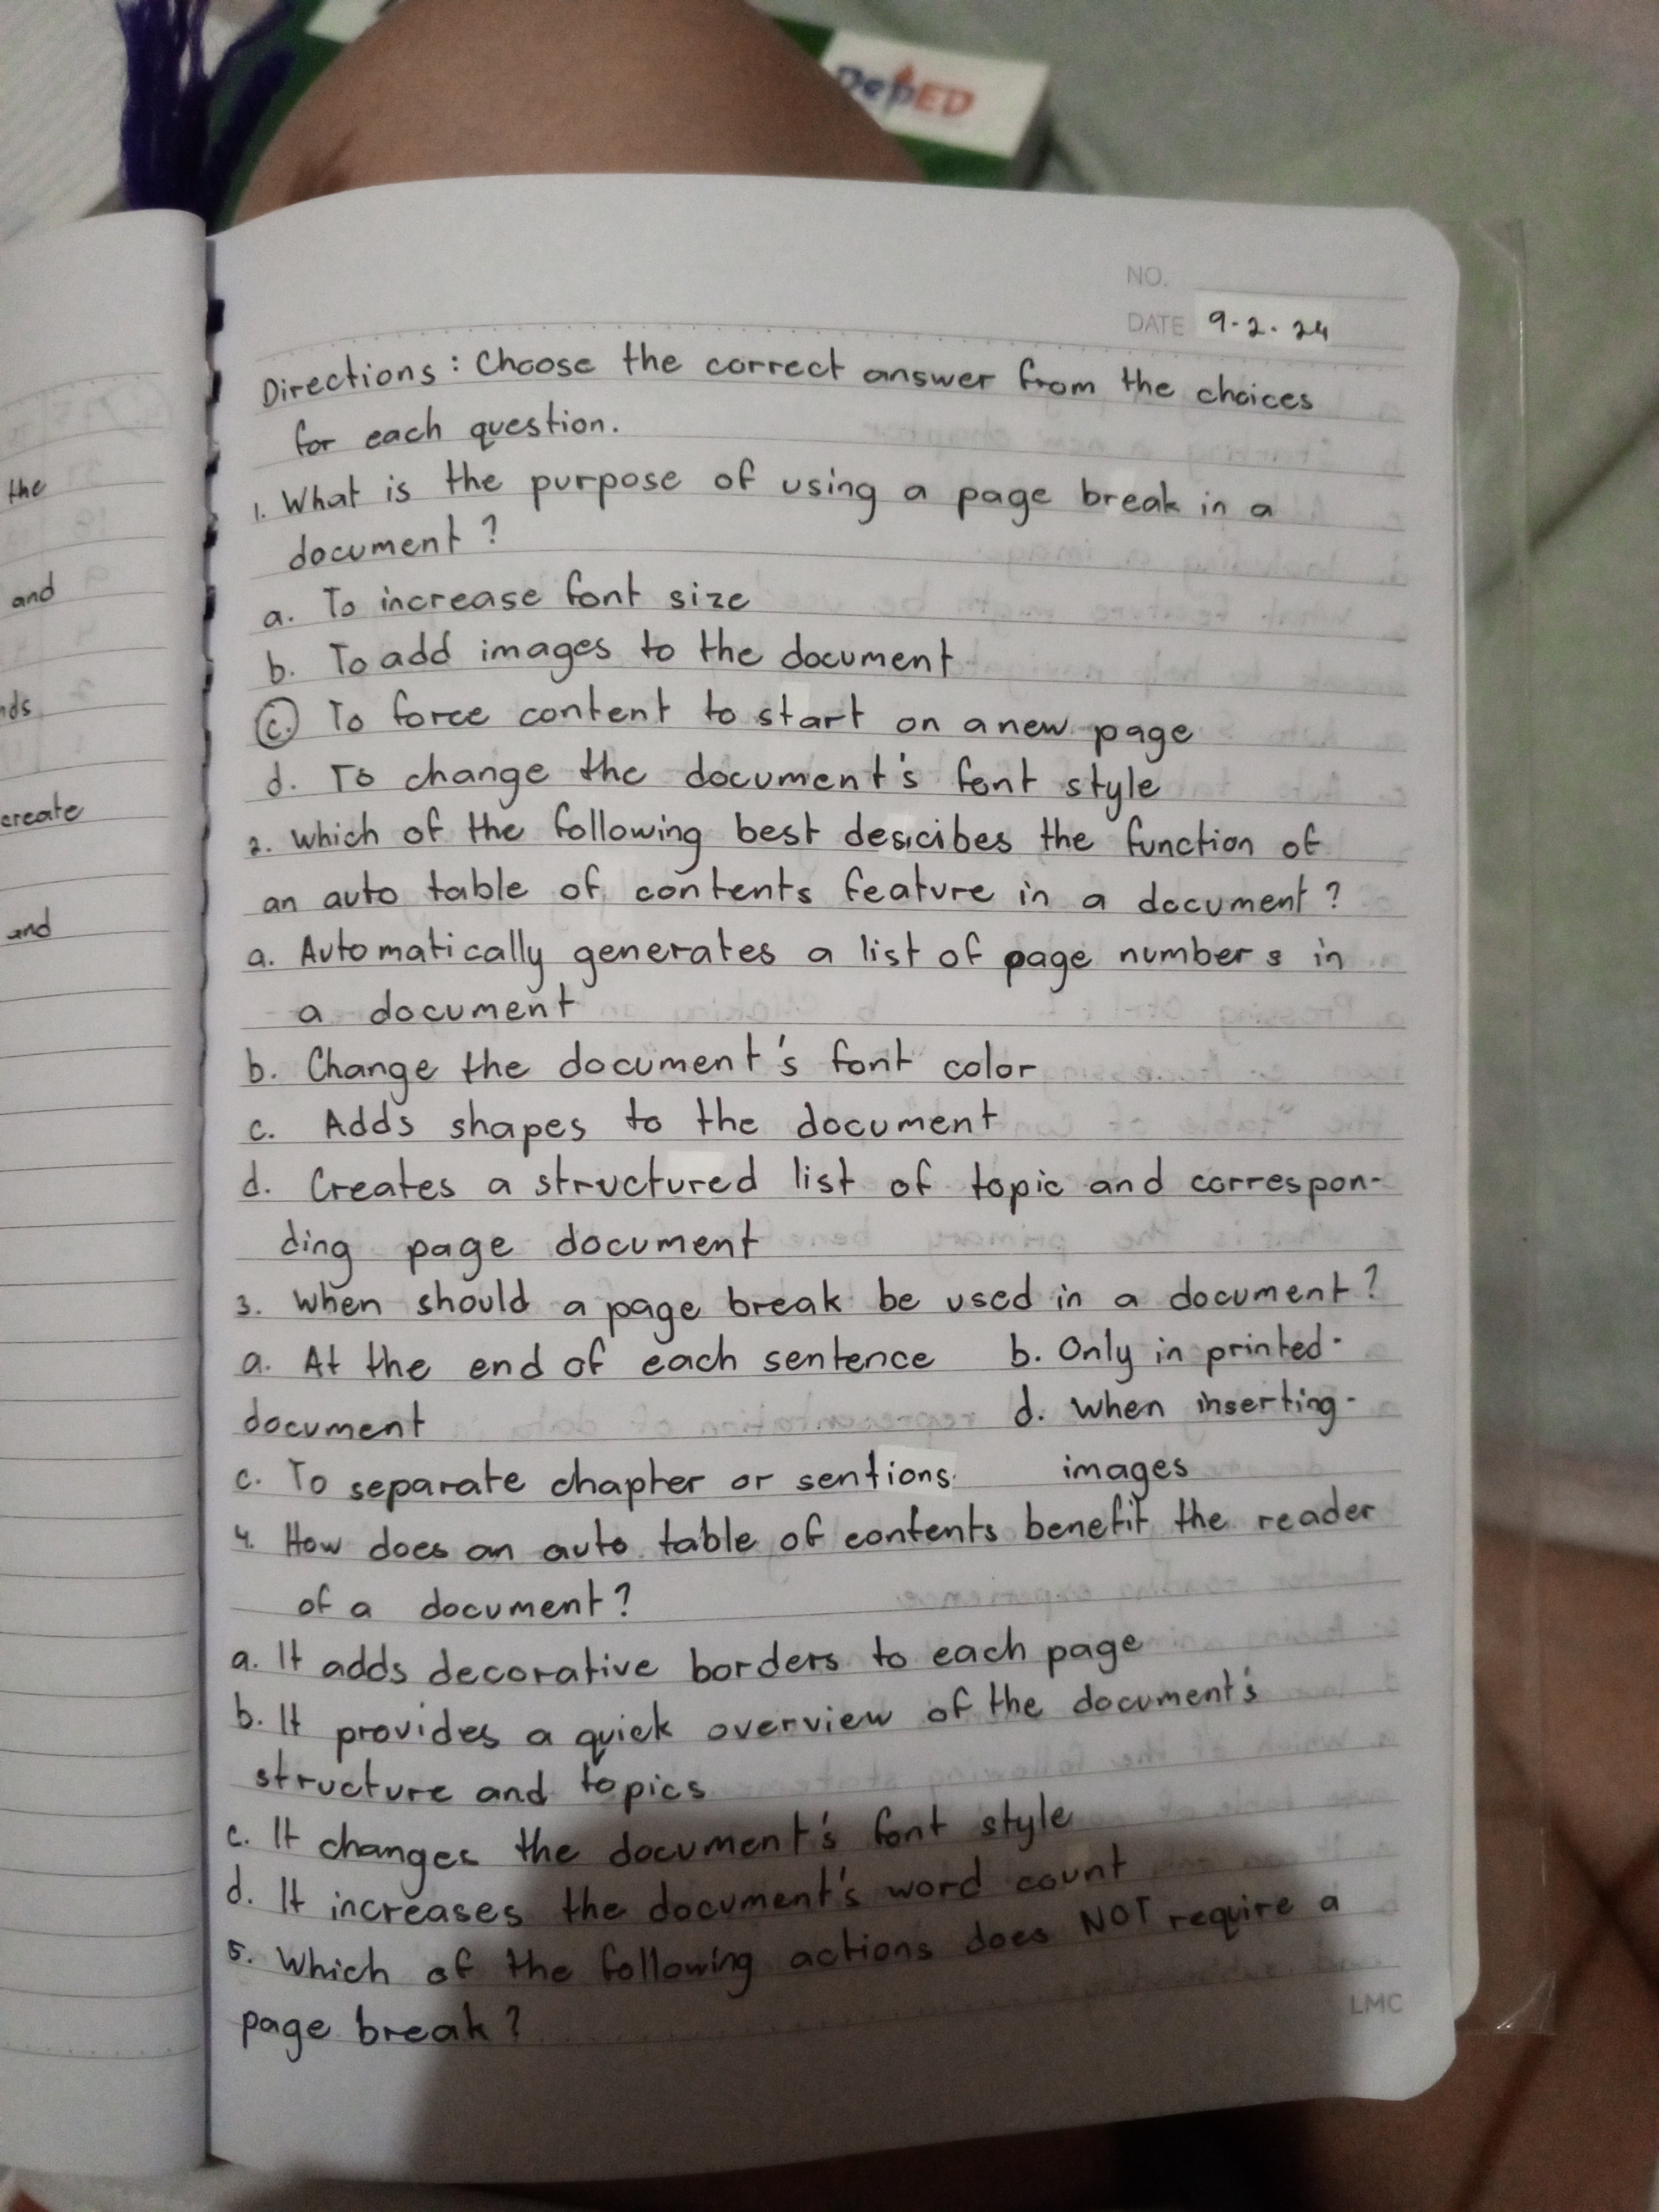 DepED
NO.
DATE 9-2-24
Directions: Choose the correct answer from the choices
for each question.
1. What is the purpose of using a page break in a
document?
a. To increase font size
b. To add images to the document
c. To force content to start on a new page
d. To change the document's font style
2. Which of the following best descibes the function of
an auto table of contents feature in a document?
a. Automatically generates a list of page numbers in
a document
b. Change the document's font color
c. Adds shapes to the document
d. Creates a structured list of topic and correspon-
ding page document
3. When should a page break be used in a document?
a. At the end of each sentence b. Only in printed-
document d. When inserting-
c. To separate chapter or sentions. images
4. How does an auto table of contents benefit the reader
of a document?
a. It adds decorative borders to each page
b. It provides a quick overview of the document's
structure and topics
c. It changes the document's font style
d. It increases the document's word count
5. Which of the following actions does NOT require a
page break?
LMC
the
and
nds
create
and